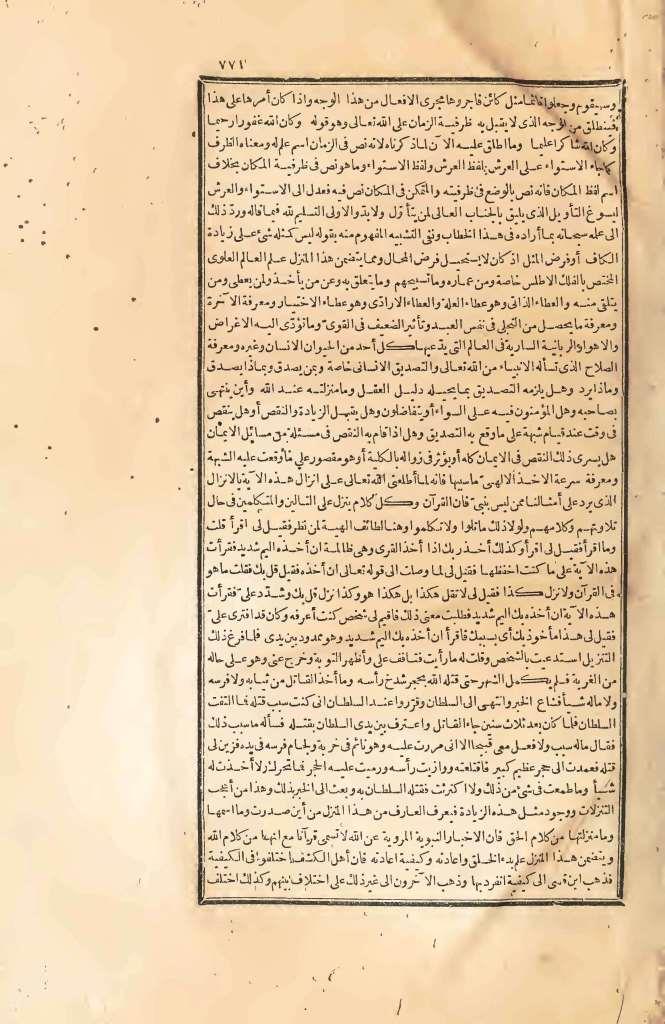 ٧٧١
وسيقوم وجعلوا فاتما مثل كائن فاجروها مجرى الافعال من هذا الوجه واذا كان أمرها على هذا
فينطلق من الوجه الذى لا يقبل به ظرفية الزمان على الله تعالى وهو قوله وكان الله غفورا رحيما
وكان الله شاكرا عليما وما اطلق عليه الآن لما ذكرناه لانه نص فى الزمان اسم علم له ومعناه الظرف
كما جاء الاستواء على العرش بلفظ العرش ولفظ الاستواء وما هو نص فى ظرفية المكان بخلاف
اسم لفظ المكان فانه نص بالوضع فى ظرفيته والمتمكن فى المكان نص فيه فعدل الى الاستواء والعرش
ليسوغ التأويل الذى يليق بالجناب العالى لمن يتأول ولا بد والاولى التسليم لله فيما قاله ورد ذلك
الى علمه سبحانه بما أراده فى هذا الخطاب ونفى التشبيه المفهوم منه بقوله ليس كمثله شئ على زيادة
الكاف أو فرض المثل اذ كان لا يستحيل فرض المحال ومما يتضمن هذا المنزل علم العالم العلوى
المختص بالفلك الاطلس خاصة ومن عماره وما تسبيحهم وما يتعلق به وعن من يأخذ ولمن يعطى ومن
يتلقى منه والعطاء الذاتى وهو عطاء العلة والعطاء الارادى وهو عطاء الاختيار ومعرفة الآخرة
ومعرفة ما يحصل من التجلى فى نفس العبد وتأثير الضعيف فى القوى وما تؤدى اليه الاغراض
والاهواء الربانية السارية فى العالم التى يدعيها كل أحد من الحيوان الانسان وغيره ومعرفة
الصلاح الذى تسأله الانبياء من الله تعالى والتصديق الانسانى خاصة وبمن يصدق وبماذا يصدق
وماذا يرد وهل يلزمه التصديق بما يحيله دليل العقل وما منزلته عند الله وأين ينتهى
بصاحبه وهل المؤمنون فيه على السواء أو يتفاضلون وهل يقبل الزيادة والنقص أو هل ينقص
فى وقت عند قيام شبهة على ما وقع به التصديق وهل اذا قام به النقص فى مسئلة من مسائل الايمان
هل يسرى ذلك النقص فى الايمان كله أو يؤثر فى زواله بالكلية أو هو مقصور على ما وقعت عليه الشبهة
ومعرفة سرعة الاخذ الالهى ما سببها فانه لما أطلعنى الله تعالى على انزال هذه الآية بالانزال
الذى يرد على أمثالنا ممن ليس بنبى فان القرآن وكل كلام ينزل على التالين والمتكلمين فى حال
تلاوتهم وكلامهم ولولا ذلك ما تلوا ولا تكلموا وهنا لطائف الهية لمن نظر فقيل لى اقرأ قلت
وما اقرأ فقيل لى اقرأ وكذلك أخذ ربك اذا أخذ القرى وهى ظالمة ان أخذه اليم شديد فقرأت
هذه الآية على ما كنت احفظها فقيل لى لما وصلت الى قوله تعالى ان أخذه فقيل قل بك فقلت ما هو
فى القرآن ولا نزل كذا فقيل لى لا تقل هكذا بل هكذا هو وكذا نزل قل بك وشدد على فقرأت
هذه الآية ان أخذه بك اليم شديد فطلبت معنى ذلك فاقيم لى شخص كنت أعرفه وكان قد افترى على
فقيل لى هذا مأخوذ بك أى بسببك فاقرأ ان أخذه بك اليم شديد وهو ممدود بين يدى فلما فرغ ذلك
التنزيل استدعيت بالشخص وقلت له ما رأيت فتأفف على وأظهر التوبة وخرج عنى وهو على حاله
من الفرية فلم يكمل الشهر حتى قتله الله بحجر شدخ رأسه وما أخذ القاتل من ثيابه ولا فرسه
ولا ماله شيأ فشاع الخبر وانتهى الى السلطان وقرروا عند السلطان انى كنت سبب قتله فما التفت
السلطان فلما كان بعد ثلاث سنين جاء القاتل واعترف بين يدى السلطان بقتله فسأله ما سبب ذلك
فقال ماله سبب ولا فعل معى قبيحا الا انى مررت عليه وهو نائم فى خربة ولجام فرسه فى يده فزين لى
قتله فعمدت الى حجر عظيم كبير فاقتلعته ووازيت رأسه ورميت عليه الحجر فما تحرك ولا أخذت له
شيأ وما طمعت فى شئ من ذلك ولا اكترثت فقتله السلطان به وبعث الى الخبر بذلك وهذا من أعجب
التنزلات ووجود مثل هذه الزيادة فيعرف العارف من هذا المنزل من أين صدرت وما اسمها
وما منزلتها من كلام الحق فان الاخبار النبوية المروية عن الله لا تسمى قرآنا مع انها من كلام الله
ويتضمن هذا المنزل علم بدء الخلق واعادته وكيفية اعادته فان أهل الكشف اختلفوا فى الكيفية
فذهب ابن قسى الى كيفية انفرد بها وذهب الآخرون الى غير ذلك على اختلاف بينهم وكذلك اختلف